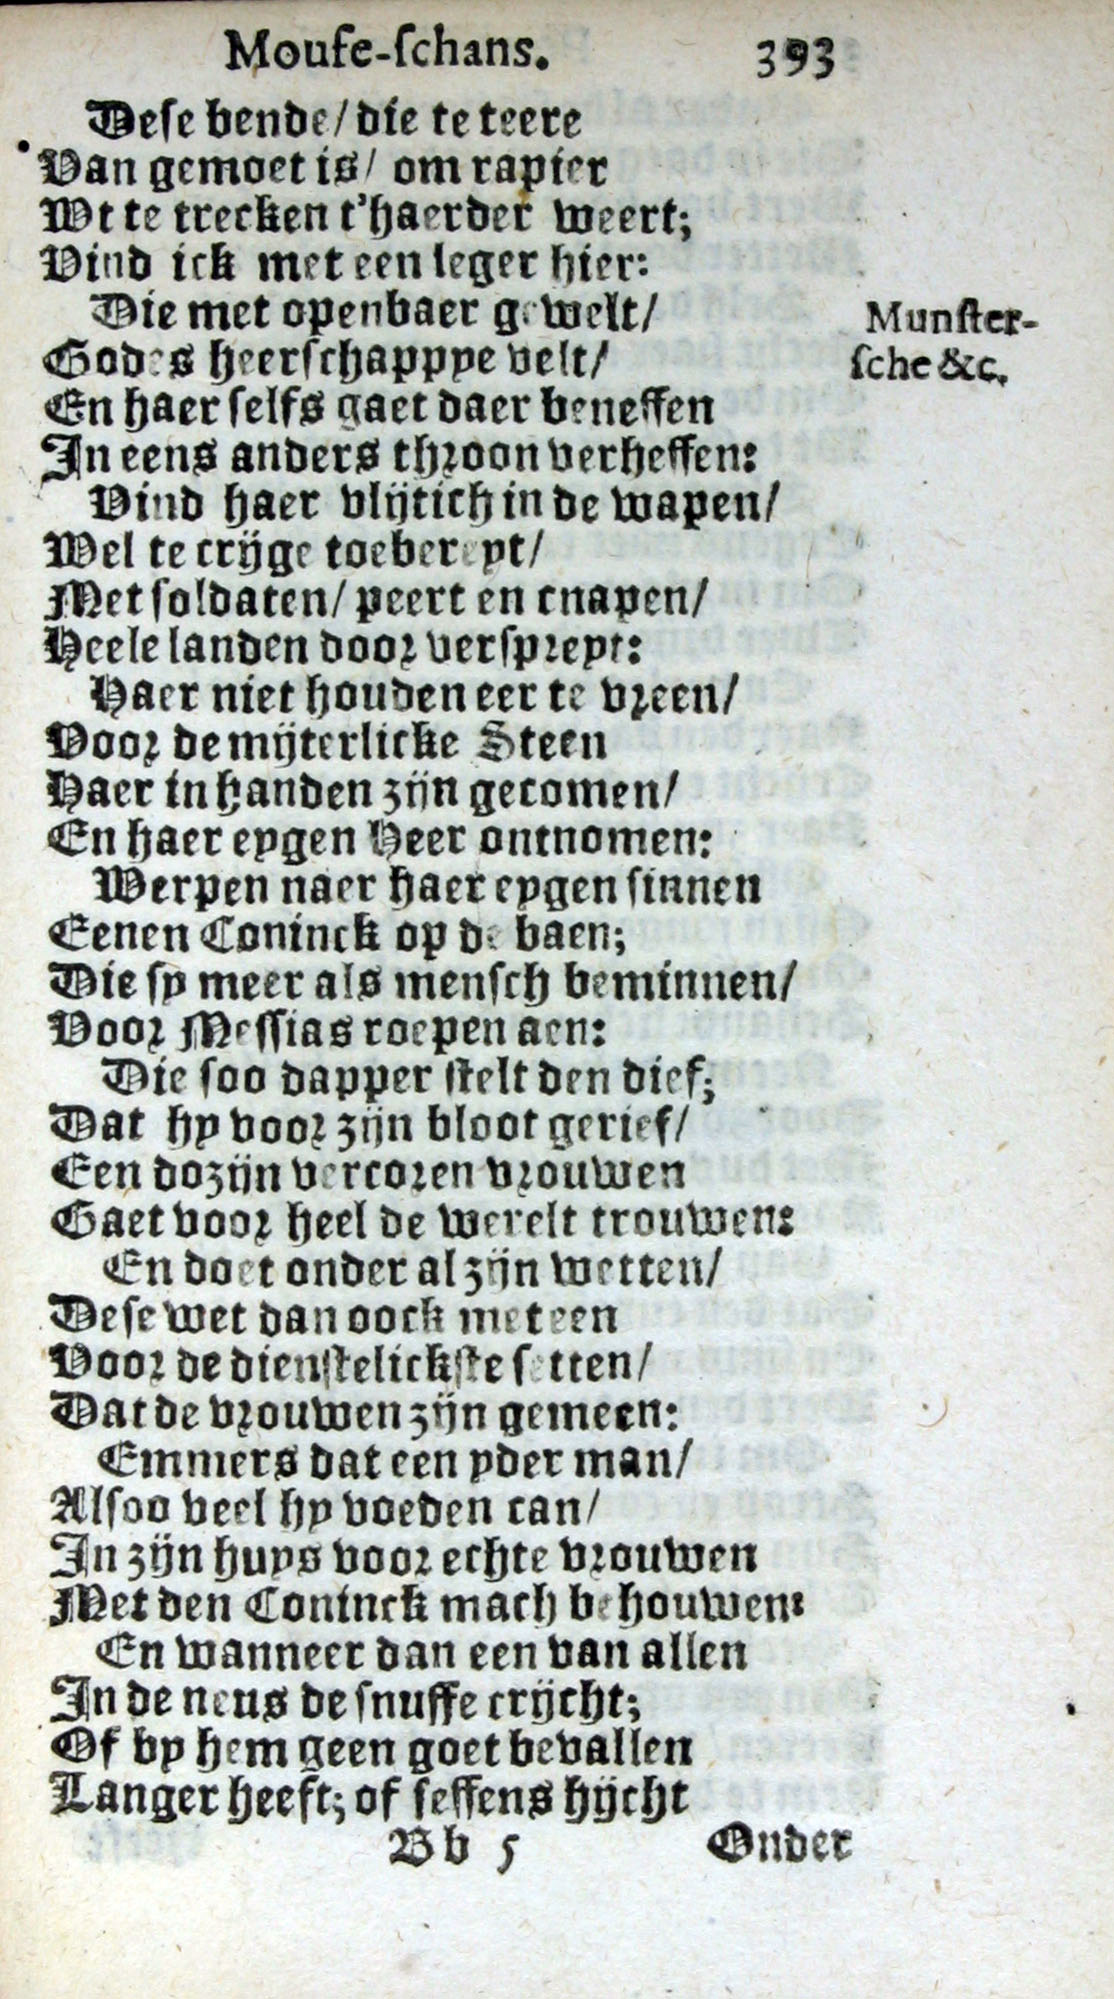 Mouse-schans. 393
Dese bende/ die te teere
Van gemoet is/ om rapier
Wt te trecken t'haerder weert;
Vind ick met een leger hier:
Die met openbaer gewelt/
Munster-
Godes heerschapppe velt/
sche &c.
En haer selfs gaet daer beneffen
In eens anders throon verheffen:
Vind haer vlijtich in de wapen/
Wel te crijge toebereyt/
Met soldaten/ peert en cnapen/
Heele landen door verspreyt:
Haer niet houden eer te vreen/
Voor de mijterlicke Steen
Haer in handen zijn gecomen/
En haer eygen Heer ontnomen:
Werpen naer haer eygen sinnen
Eenen Coninck op de baen;
Die sy meer als mensch beminnen/
Voor Messias roepen aen:
Die soo dapper stelt den dief;
Dat hy voor zijn bloot gerief/
Een dozijn vercoren vrouwen
Gaet voor heel de werelt trouwen:
En doet onder al zijn wetten/
Dese wet dan oock met een
Voor de dienstelickste setten/
Dat de vrouwen zijn gemeen:
Emmers dat een yder man/
Alsoo veel hy voeden can/
In zijn huys voor echte vrouwen
Met den Coninck mach behouwen:
En wanneer dan een van allen
In de neus de snuffe crijcht;
Of by hem geen goet bevallen
Langer heeft; of seffens hijcht
Bb 5 Onder